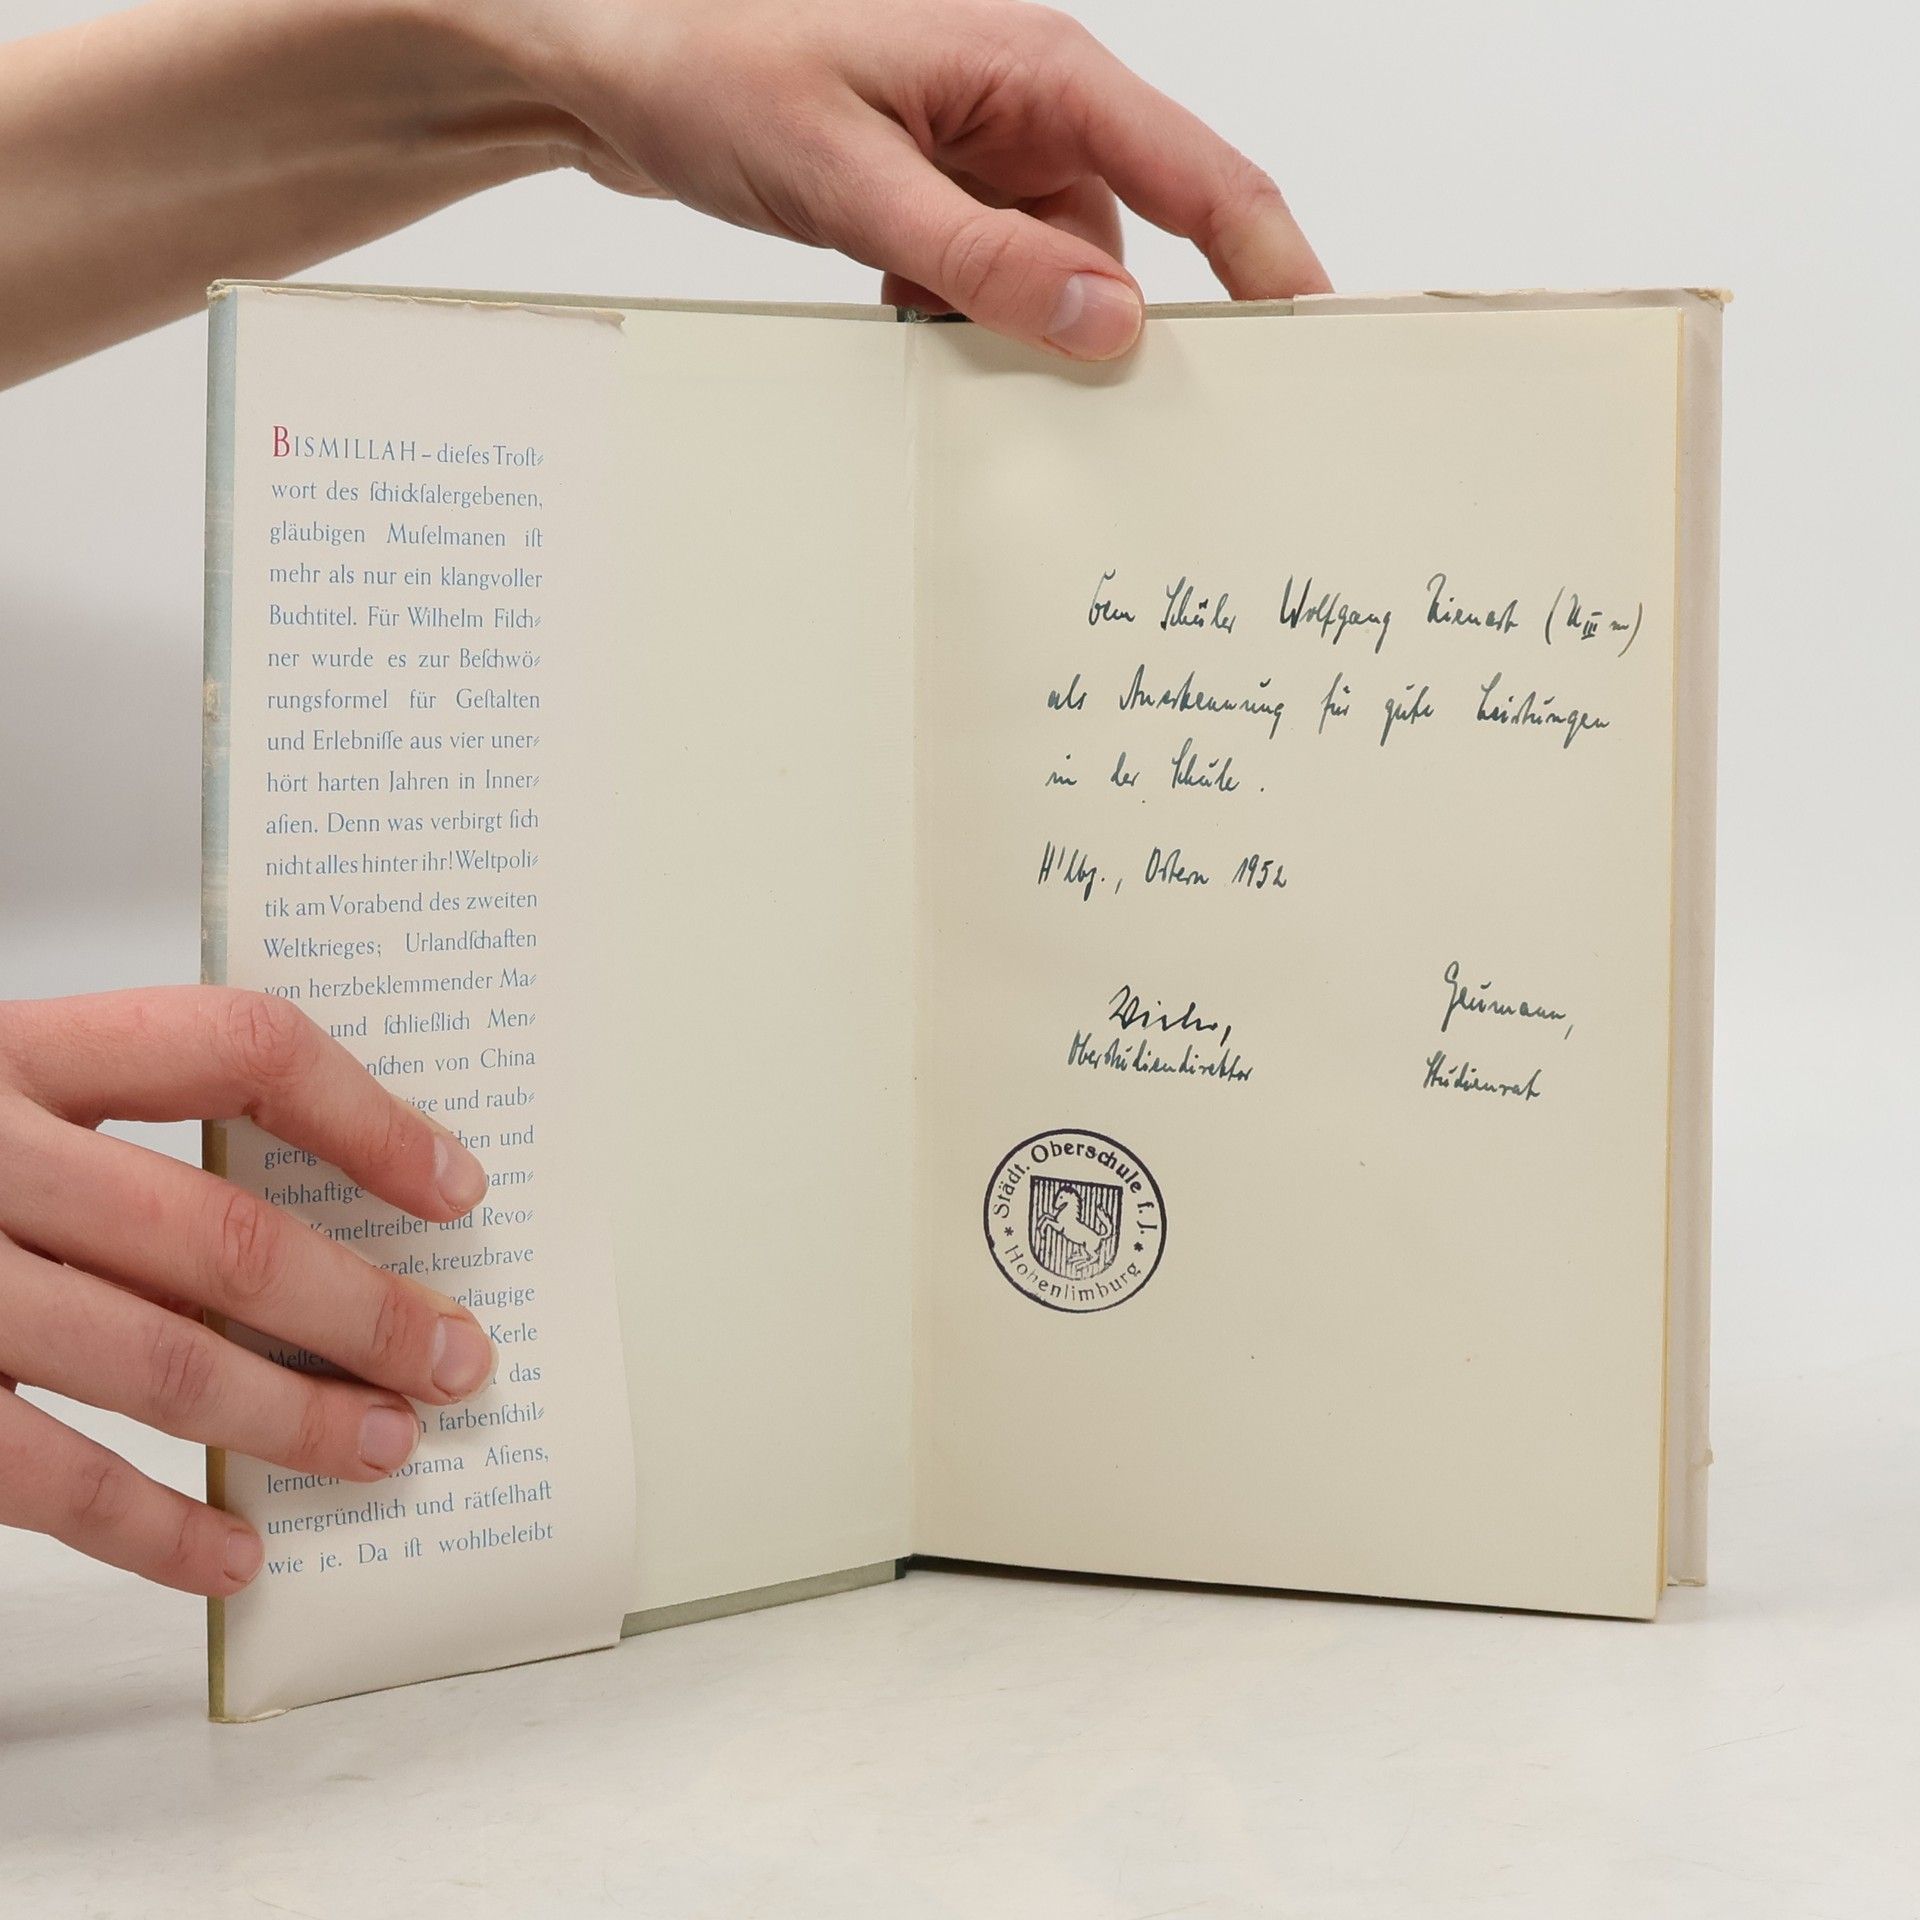 BISMILLAH – dieſes Troſt⸗
wort des ſchickſalergebenen,
gläubigen Muſelmanen iſt
mehr als nur ein klangvoller
Buchtitel. Für Wilhelm Filch⸗
ner wurde es zur Beſchwö⸗
rungsformel für Geſtalten
und Erlebniſſe aus vier uner⸗
hört harten Jahren in Inner⸗
aſien. Denn was verbirgt ſich
nicht alles hinter ihr! Weltpoli⸗
tik am Vorabend des zweiten
Weltkrieges; Urlandſchaften
von herzbeklemmender Ma⸗
und ſchließlich Men⸗
nſchen von China
tige und raub⸗
gierig hen und
leibhaftige harm⸗
Kameltreiber und Revo⸗
erale, kreuzbrave
geläugige
Meſſer Kerle
das
farbenſchil⸗
lernden orama Aſiens,
unergründlich und rätſelhaft
wie je. Da iſt wohlbeleibt
Dem Schüler Wolfgang (U III m)
als Anerkennung für gute Leistungen
in der Schule.
H'lbg., Ostern 1952
Oberstudiendirektor
Studienrat
Städt. Oberschule f. J.
* Hohenlimburg *